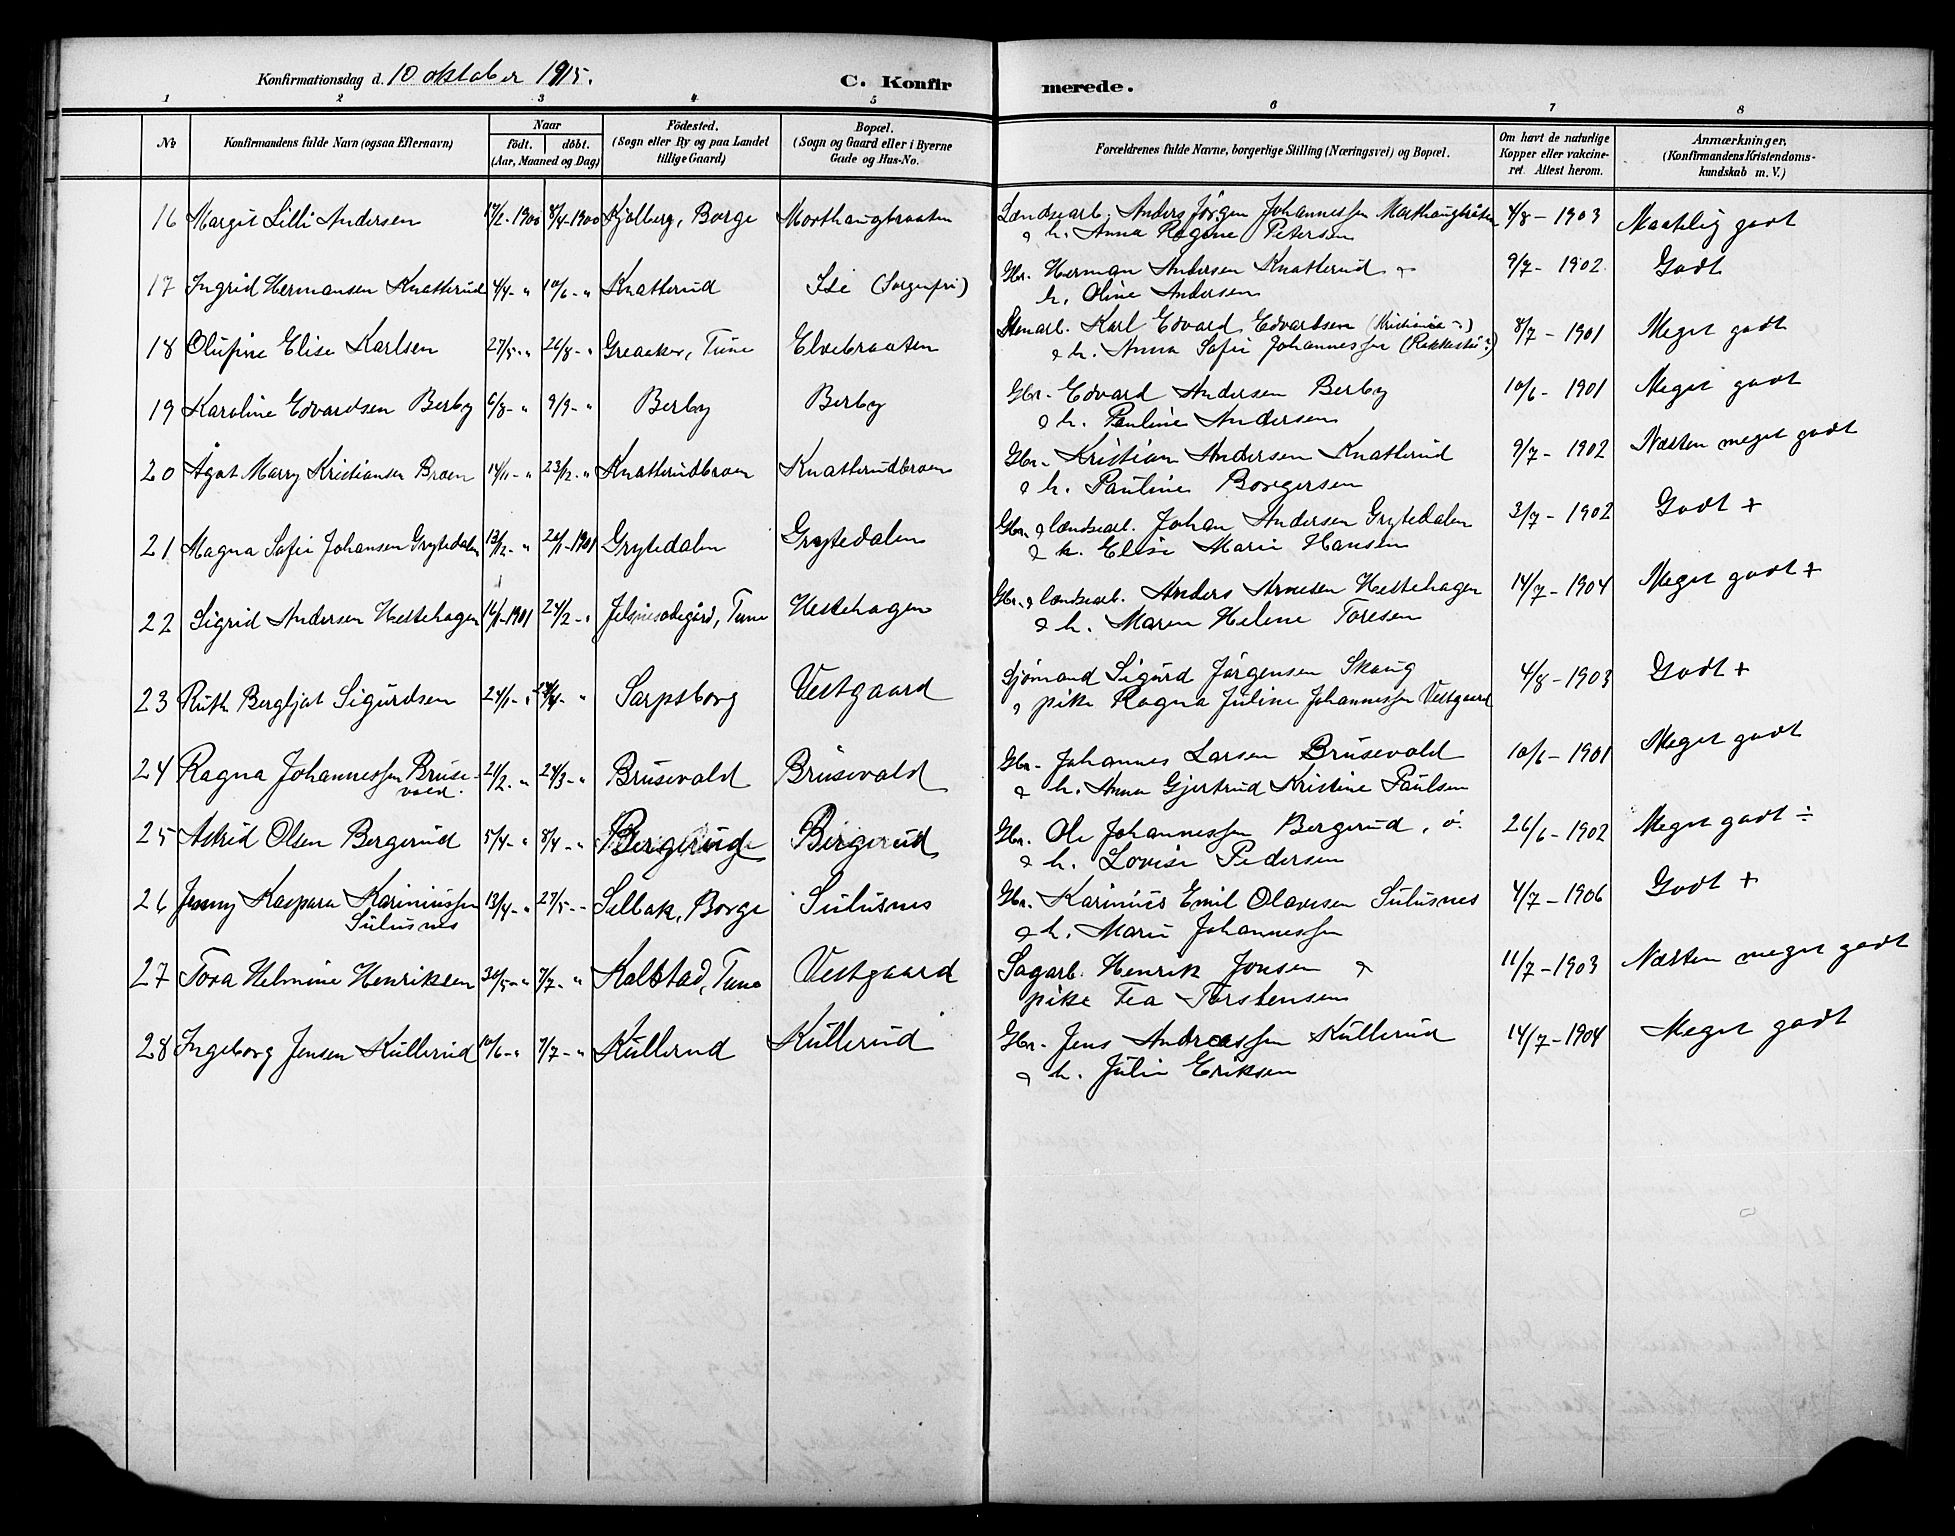 Konfirmationsdag d. 10 oktober 1915. C. Konfirmerede.
1 2 3 4 5 6 7 8
No Konfirmandens fulde Navn (ogsaa Efternavn) Naar födt. döbt. (Aar, Maaned og Dag) Födested. (Sogn eller By og paa Landet tillige Gaard) Bopæl. (Sogn og Gaard eller i Byerne Gade og Hus-No. Forældrenes fulde Navne, borgerlige Stilling (Næringsvei) og Bopæl. Om havt de naturlige Kopper eller vakcineret. Attest herom. Anmærkninger. (Konfirmandens Kristendomskundskab m. V.)
16 Margit Lilli Andersen 1900 8/4-1900 Kjölberg, Borge Morthaugbraaten Landsearb. Anders Jörgen Johannessen 4/8-1903 Maatelig godt
& h. Anna Ragine Petersen
17 Ingrid Hermansen Knatterud 4/4-" 10/6-" Knatterud Ide (Sorgenfri) Gbr. Herman Andersen Knatterud & 9/7-1902 Godt
h. Oline Andersen
18 Olufine Elise Karlsen 27/5-" 26/8-" Greaaker, Tune Elvebraaten Stenarb. Karl Edvard Edvardsen (Kristiania) 8/7-1901 Meget godt
& h. Anna Sofie Johannessen
19 Karoline Edvardsen Berby 6/8-" 9/9-" Berby Berby Gbr. Edvard Andersen Berby 10/6-1901 Meget godt
& h. Pauline Andersen
20 Ågot Marry Kristiansen Broen 14/11-" 23/12-" Knatterudbroen Knatterudbroen Gbr. Kristian Andersen Knatterud 9/7-1902 Næsten meget godt
& h. Pauline Borgersen
21 Magna Sofie Johansen Grytedalen 13/12-" 26/1-1901 Grytedalen Grytedalen Gbr. & landsearb. Johan Andersen Grytedalen 3/7-1902 Godt +
& h. Elise Marie Hansen
22 Sigrid Andersen Hestehagen 16/1-1901 24/2-" Tune Hestehagen Gbr. & landsearb. Anders Arnesen Hestehagen 14/7-1904 Meget godt +
& h. Maren Helene Toresen
23 Ruth Bergljot Sigurdsen 24/1-" " Sarpsborg Vestgaard Sjömand Sigurd Jörgensen Skaug 4/8-1903 Godt +
& pike Ragna Juline Johannessen Vestgaard
24 Ragna Johannessen Brusevold. 21/2-" 24/3-" Brusevold Brusevold Gbr. Johannes Larsen Brusevold 10/6-1901 Meget godt
& h. Anna Gjertrud Kristine Paulsen
25 Astrid Olsen Bergerud 5/4-" 8/4-" Bergerud Bergerud Gbr. Ole Johannessen Bergerud, ö. 26/6-1902 Meget godt ÷
& h. Lovise Pedersen
26 Jenny Kaspara Kariniussen Sulusnes 13/4-" 27/5-" Selbak, Borge Sulusnes Gbr. Karinius Emil Olavesen Sulusnes 4/7-1906 Godt +
& h. Marie Johannessen
27 Tora Helmine Henriksen 30/5-" 7/7-" Kalstad, Tune Vestgaard Sagarb. Henrik Jonsen & 11/7-1903 Næsten meget godt
pike Tea Torstensen
28 Ingeborg Jensen Kullerud 10/6-" 7/7-" Kullerud Kullerud Gbr. Jens Andreassen Kullerud 14/7-1904 Meget godt
& h. Julie Eriksen